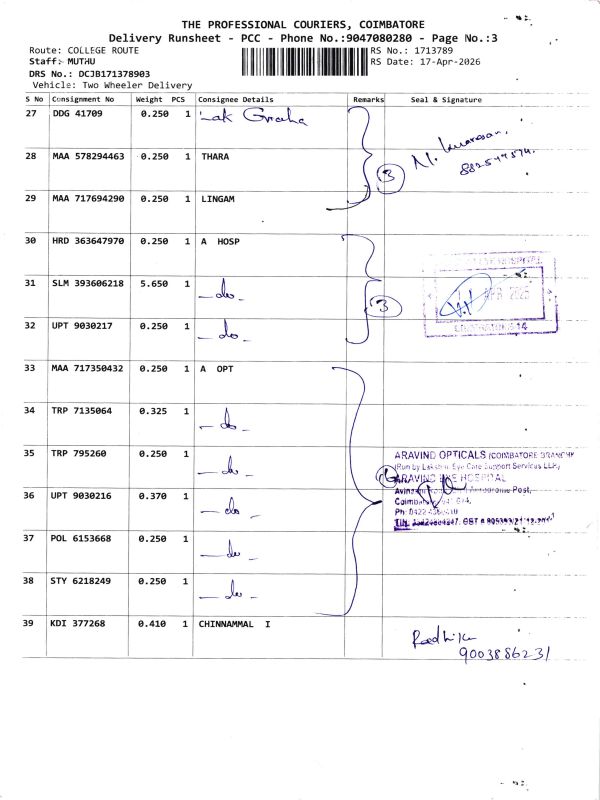 THE PROFESSIONAL COURIERS, COIMBATORE
Delivery Runsheet - PCC - Phone No.:9047080280 - Page No.:3
Route: COLLEGE ROUTE
RS No.: 1713789
Staff: MUTHU
RS Date: 17-Apr-2026
DRS No.: DCJB171378903
Vehicle: Two Wheeler Delivery
S No Consignment No Weight PCS Consignee Details Remarks Seal & Signature
27 DDG 41709 0.250 1 Lak Graha
28 MAA 578294463 0.250 1 THARA
3
29 MAA 717694290 0.250 1 LINGAM
30 HRD 363647970 0.250 1 A HOSP
31 SLM 393606218 5.650 1 - do -
APR 2025
3
32 UPT 9030217 0.250 1 - do -
33 MAA 717350432 0.250 1 A OPT
34 TRP 7135064 0.325 1 - do -
35 TRP 795260 0.250 1 - do -
ARAVIND OPTICALS (COIMBATORE BRANCH)
(Run by Lakshmi Eye Care Support Services LLP)
ARAVIND EYE HOSPITAL
36 UPT 9030216 0.370 1 - do -
Post,
37 POL 6153668 0.250 1 - do -
38 STY 6218249 0.250 1 - do -
39 KDI 377268 0.410 1 CHINNAMMAL I
Radhika
9003886231